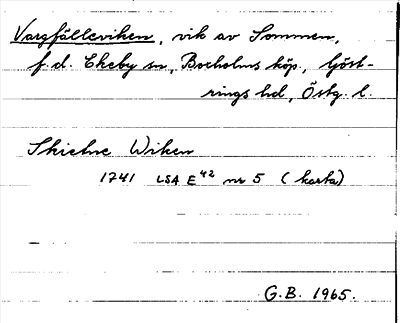 Vargfälleviken, vik av Sommen,
f.d. Ekeby sn, Boxholms köp., Göst-
rings hd, Östg. l.
Skietne Wiken
1741 LSA E42 nr 5 (karta)
G.B. 1965.